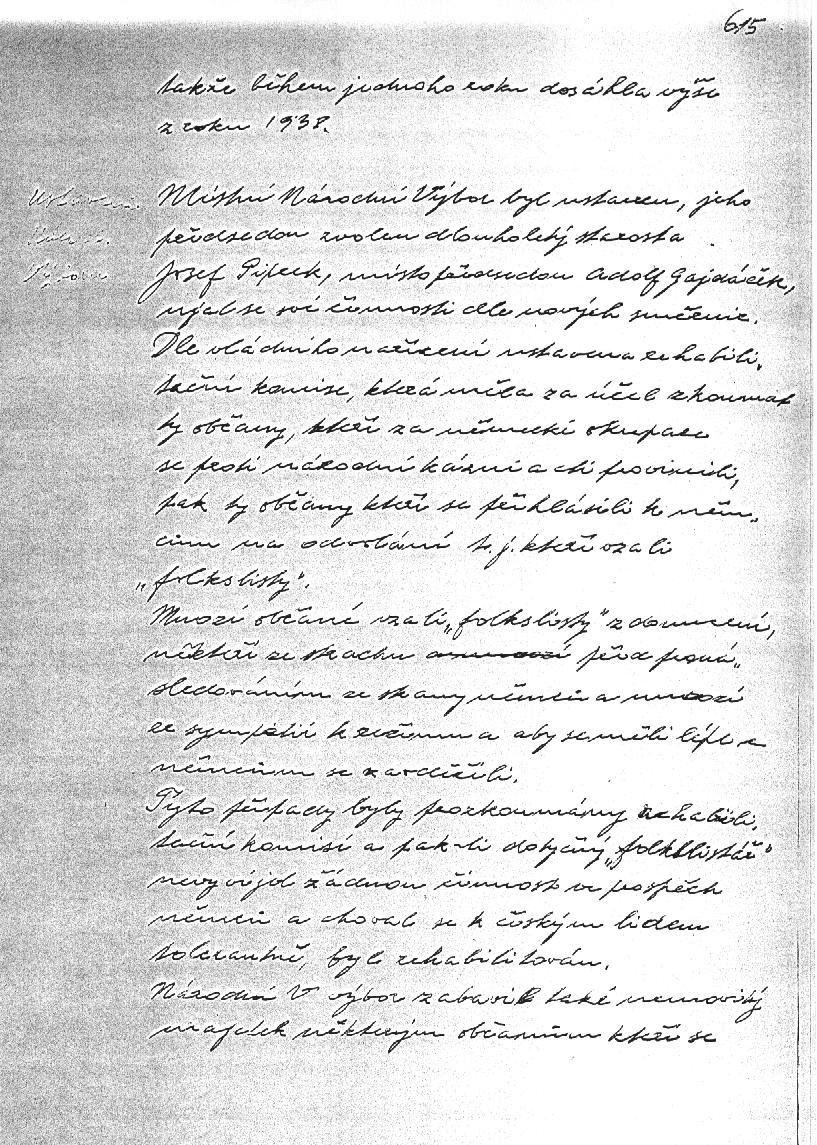 615
takže během jednoho roku dosáhla výše
z roku 1938.
Ustavení
Místní Národní Výbor byl ustaven, jeho
předsedou zvolen dlouholetý starosta
Výboru
Josef Pipeck, místopředsedou Adolf Gajdáček,
ujal se své činnosti dle nových směrnic.
Dle vládního nařízení ustavena rehabili„
tační komise, která měla za účel zkoumat
ty občany, kteří za německé okupace
se proti národní kázni a cti provinili,
pak ty občany kteří se přihlásili k něm„
cům na odvolání t. j. kteří vzali
„folkslisty".
Mnozí občané vzali „folkslisty" z donucení,
někteří ze strachu mnozí před proná„
sledováním ze strany němců a mnozí
ze sympatií k režimu a aby se měli lépe a
němcům se zavděčili.
Tyto případy byly prozkoumány rehabili„
tační komisí a pak-li dotyčný „folkslistář"
nevyvíjel žádnou činnost ve prospěch
němců a choval se k českým lidem
tolerantně, byl rehabilitován.
Národní V výbor zabavil také nemovitý
majetek některým občanům kteří se